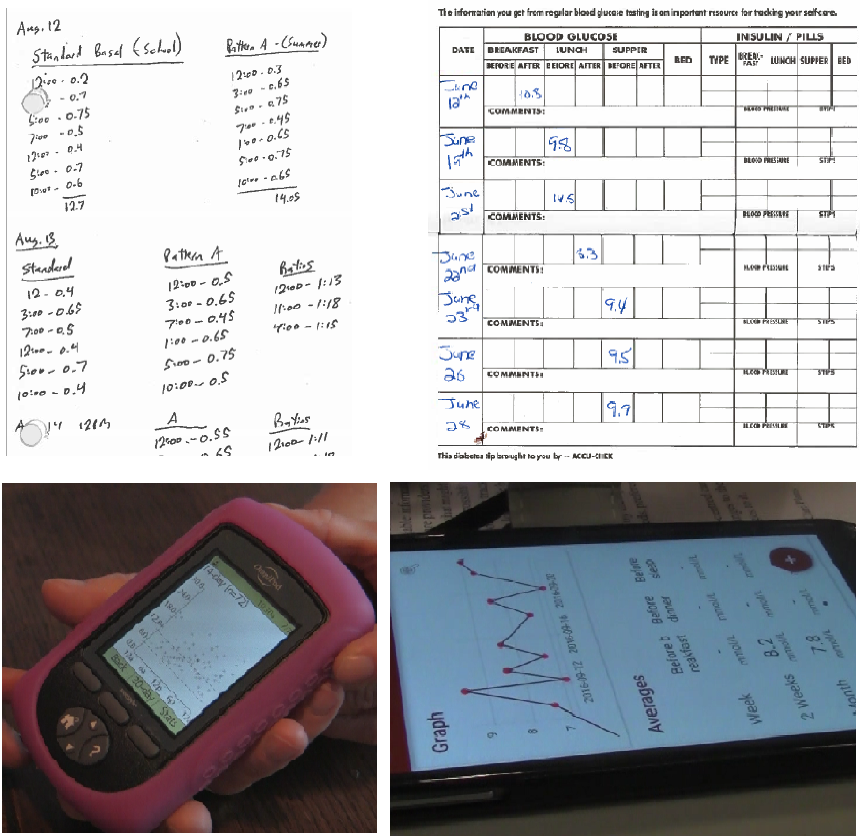 Aug. 12
Standard Basal (School)
Pattern A - (Summer)
12:00 - 0.2
- 0.7
5:00 - 0.75
7:00 - 0.5
12:00 - 0.4
5:00 - 0.7
10:00 - 0.6
12.7
12:00 - 0.3
3:00 - 0.65
5:00 - 0.75
7:00 - 0.45
1:00 - 0.65
5:00 - 0.75
10:00 - 0.65
14.05
Aug. 13
Standard
12 - 0.4
3:00 - 0.65
7:00 - 0.5
12:00 - 0.4
5:00 - 0.7
10:00 - 0.4
Pattern A
12:00 - 0.5
3:00 - 0.65
7:00 - 0.45
1:00 - 0.65
5:00 - 0.75
10:00 - 0.5
Ratios
12:00 - 1:13
11:00 - 1:18
4:00 - 1:15
A
12:00 - 0.55
Ratios
12:00 - 1:11
The information you get from regular blood glucose testing is an important resource for tracking your selfcare.
BLOOD GLUCOSE
INSULIN / PILLS
DATE
BREAKFAST
LUNCH
SUPPER
BED
TYPE
BREAK-
FAST
LUNCH
SUPPER
BED
BEFORE AFTER BEFORE AFTER BEFORE AFTER
June
12th
10.8
COMMENTS:
BLOOD PRESSURE
STEPS
June
9.8
COMMENTS:
BLOOD PRESSURE
STEPS
June
21st
COMMENTS:
BLOOD PRESSURE
STEPS
June
22nd
COMMENTS:
BLOOD PRESSURE
STEPS
June
23rd
9.4
COMMENTS:
BLOOD PRESSURE
STEPS
June
26
9.5
COMMENTS:
BLOOD PRESSURE
STEPS
June
28
9.7
COMMENTS:
BLOOD PRESSURE
STEPS
This diabetes tip brought to you by — ACCU-CHEK
14-Day (n=72)
Back
Graph
9
8
7
2016-09-12
2016-09-16
2016-09-20
Averages
Before b
reakfast
Before
dinner
Before
sleep
Week
mmol/L
mmol/L
mmol/L
2 Weeks
8.2
mmol/L
mmol/L
mmol/L
Month
7.8